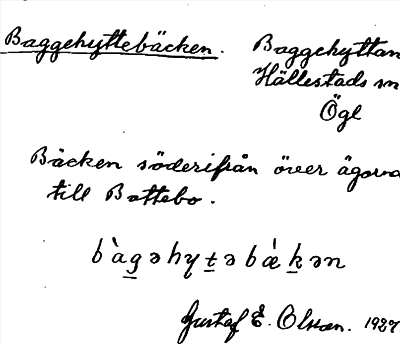 Baggehyttebäcken. Baggehyttan
Hällestads sn
Ögl
Bäcken söderifrån över ägorna
till Bottebo.
b`ag̲əhyt̲əbǽk̲ən
Gustaf E. Olson. 1927